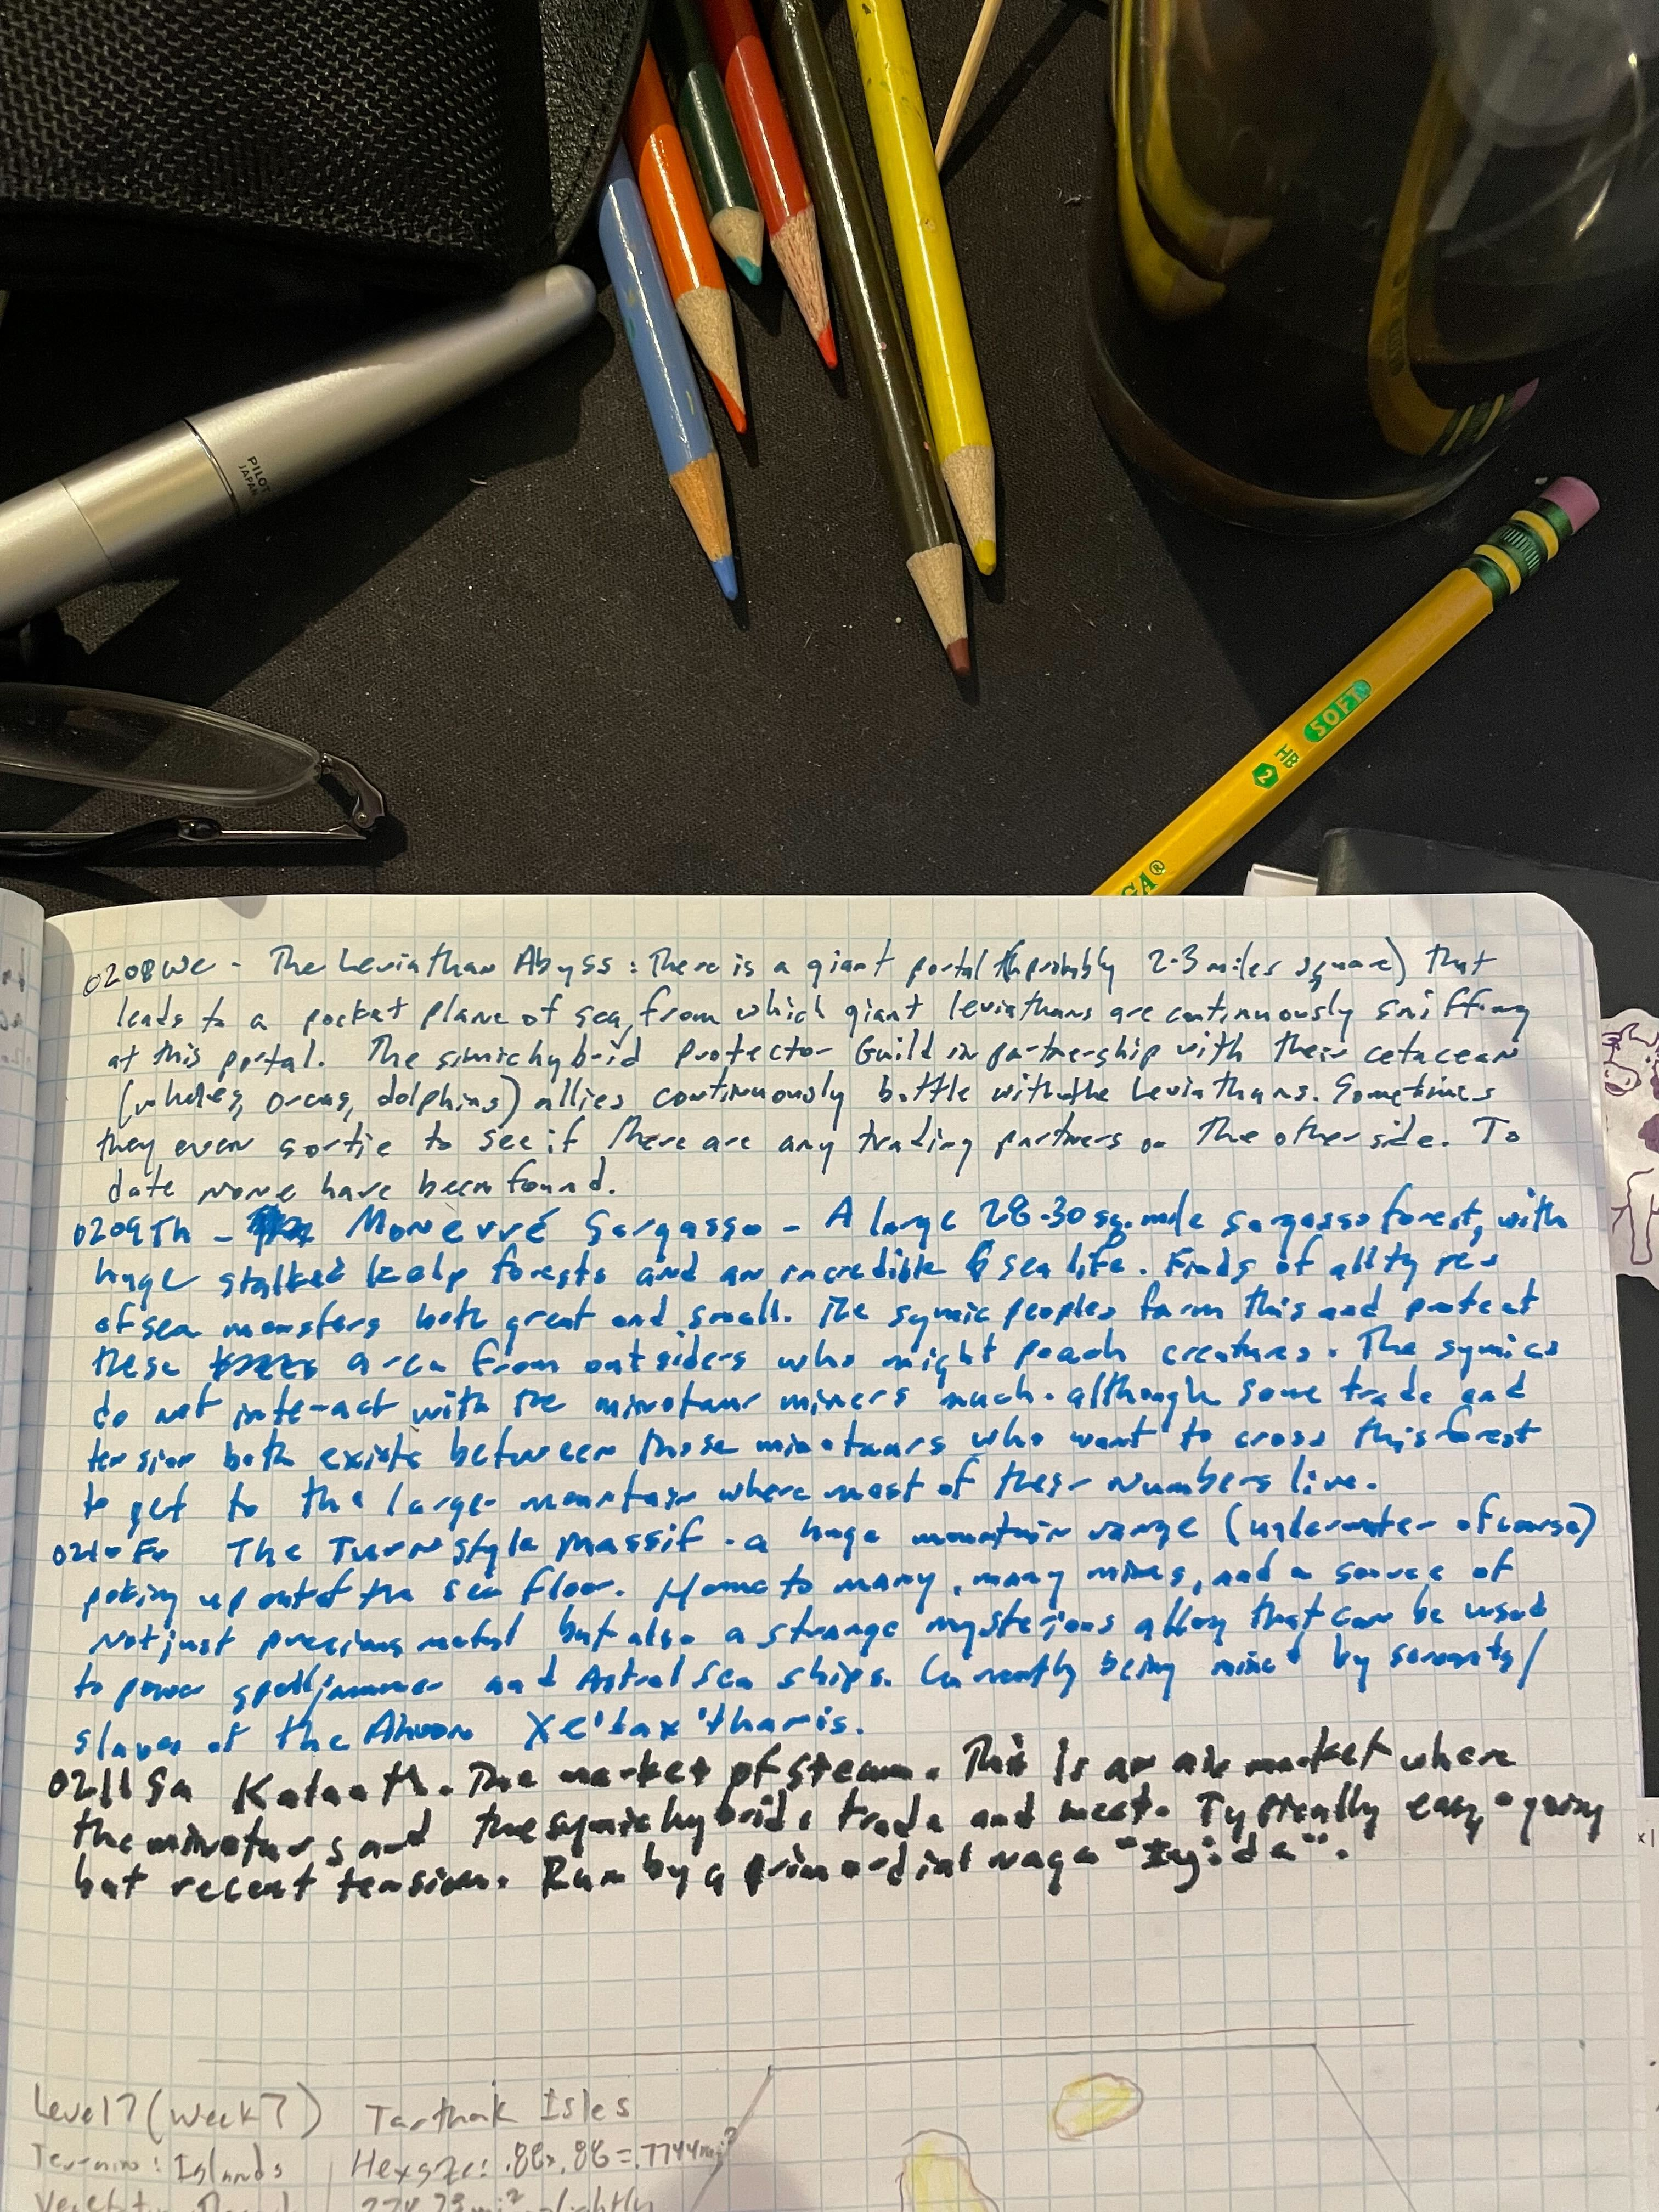 PILOT
JAPAN
SOFT
HB
2
GA®
0208We - The Leviathan Abyss : There is a giant portal (probably 2-3 miles square) that
leads to a pocket plane of sea, from which giant leviathans are continuously sniffing
at this portal. The simichybrid Protector Guild in partnership with their cetacean
(whales, orcas, dolphins) allies continuously battle with the Leviathans. Sometimes
they even sortie to see if there are any trading partners on the other side. To
date none have been found.
0209Th - Monevré Sargasso - A large 28-30 sq. mile sargasso forest, with
huge stalked kelp forests and an incredible sea life. Finds of all types
of sea monsters both great and small. The symic peoples farm this and protect
these area from outsiders who might poach creatures. The symics
do not interact with the minotaur miners much. although some trade and
tension both exists between those minotaurs who want to cross this forest
to get to the large mountain where most of their numbers live.
0210Fr The Turnstyle Massif - a huge mountain range (underwater of course)
poking up out of the sea floor. Home to many, many mines, and a source of
not just precious metal but also a strange mysterious alloy that can be used
to power spelljammer and Astral Sea ships. Currently being mined by servants/
slaves of the Xe'tax'tharis.
0211Sa Kalaath. The market of steam. This is an air market where
the minotaurs and the symic hybrids trade and meet. Typically easy-going
but recent tension. Run by a primordial naga
Level 7 (Week 7) Tarthak Isles
Terrain : Islands Hex size: .88x.88=.7744mi²
slightly